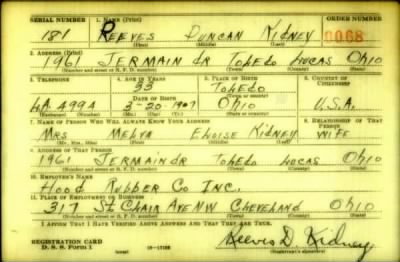 SERIAL NUMBER 1. NAME (Print) ORDER NUMBER
181 REEVES DUNCAN KIDNEY 0068
(First) (Middle) (Last)
2. ADDRESS (Print)
1961 JERMAIN DR TOLEDO LUCAS OHIO
(Number and street or R. F. D. number) (Town) (County) (State)
3. TELEPHONE 4. AGE IN YEARS 5. PLACE OF BIRTH 6. COUNTRY OF CITIZENSHIP
33 TOLEDO
DATE OF BIRTH (Town or county)
LA 4994 3-20 1907 OHIO U.S.A.
(Exchange) (Number) (Mo.) (Day) (Yr.) (State or country)
7. NAME OF PERSON WHO WILL ALWAYS KNOW YOUR ADDRESS 8. RELATIONSHIP OF THAT PERSON
MRS MELVA ELOISE KIDNEY WIFE
(Mr., Mrs., Miss) (First) (Middle) (Last)
9. ADDRESS OF THAT PERSON
1961 JERMAIN DR TOLEDO LUCAS OHIO
(Number and street or R. F. D. number) (Town) (County) (State)
10. EMPLOYER'S NAME
HOOD RUBBER CO INC.
11. PLACE OF EMPLOYMENT OR BUSINESS
317 St CLAIR AVE NW CLEVELAND OHIO
(Number and street or R. F. D. number) (Town) (County) (State)
I AFFIRM THAT I HAVE VERIFIED ABOVE ANSWERS AND THAT THEY ARE TRUE.
REGISTRATION CARD
D. S. S. Form 1 (over) 16-17105 Reeves D. Kidney
(Registrant's signature)